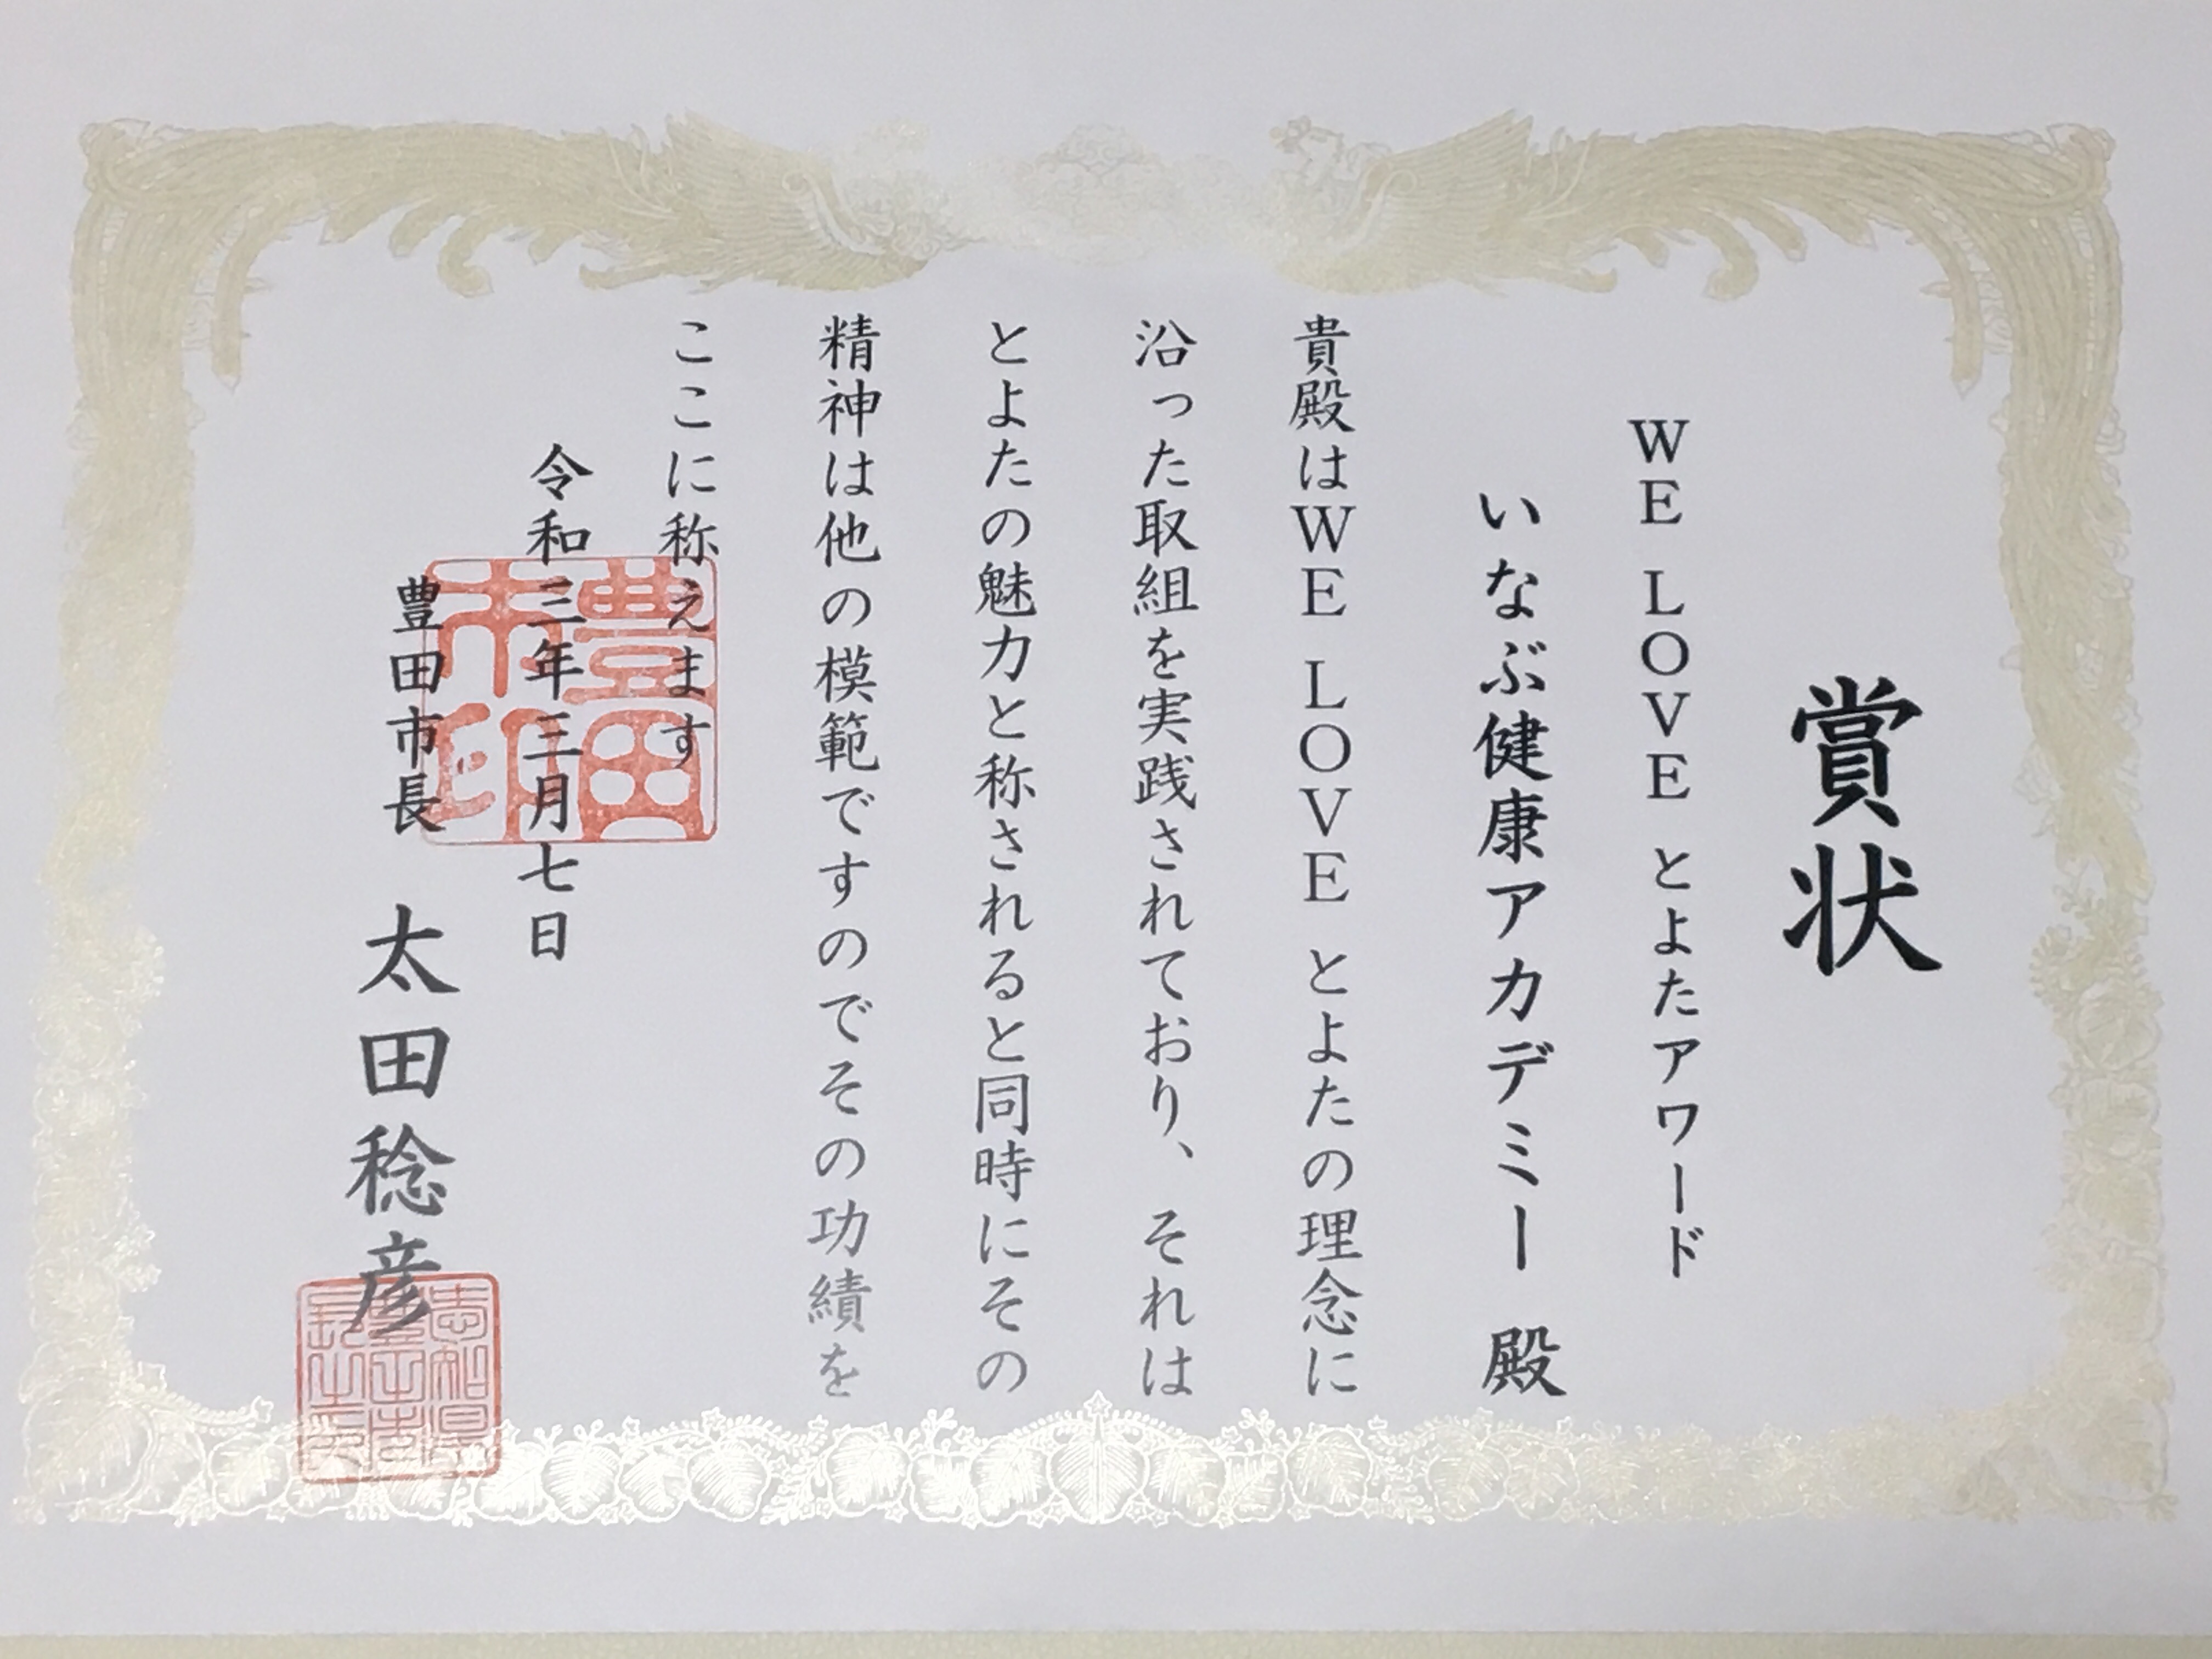 賞状
WE LOVE とよたアワード
いなぶ健康アカデミー 殿
貴殿はWE LOVE とよたの理念に
沿った取組を実践されており、それは
とよたの魅力と称されると同時にその
精神は他の模範ですのでその功績を
ここに称えます
令和三年三月七日
豊田市長 太田稔彦
豊田市印